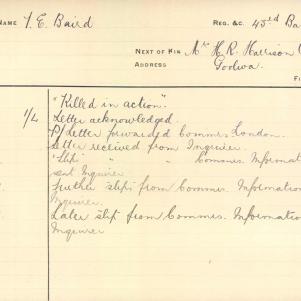 NAME T. E. Baird REG. &C. 45rd Ba
NEXT OF KIN Mr H. R. Harrison
ADDRESS Godwa.
1/L "Killed in action".
Letter acknowledged.
P/Letter forwarded Commrs. London.
Letter received from Inquirer.
'Slip' " " Commrs. Informatio
sent Inquirer
further slip from Commrs. Information
Inquirer.
Later slip from Commrs. Informatio
Inquirer